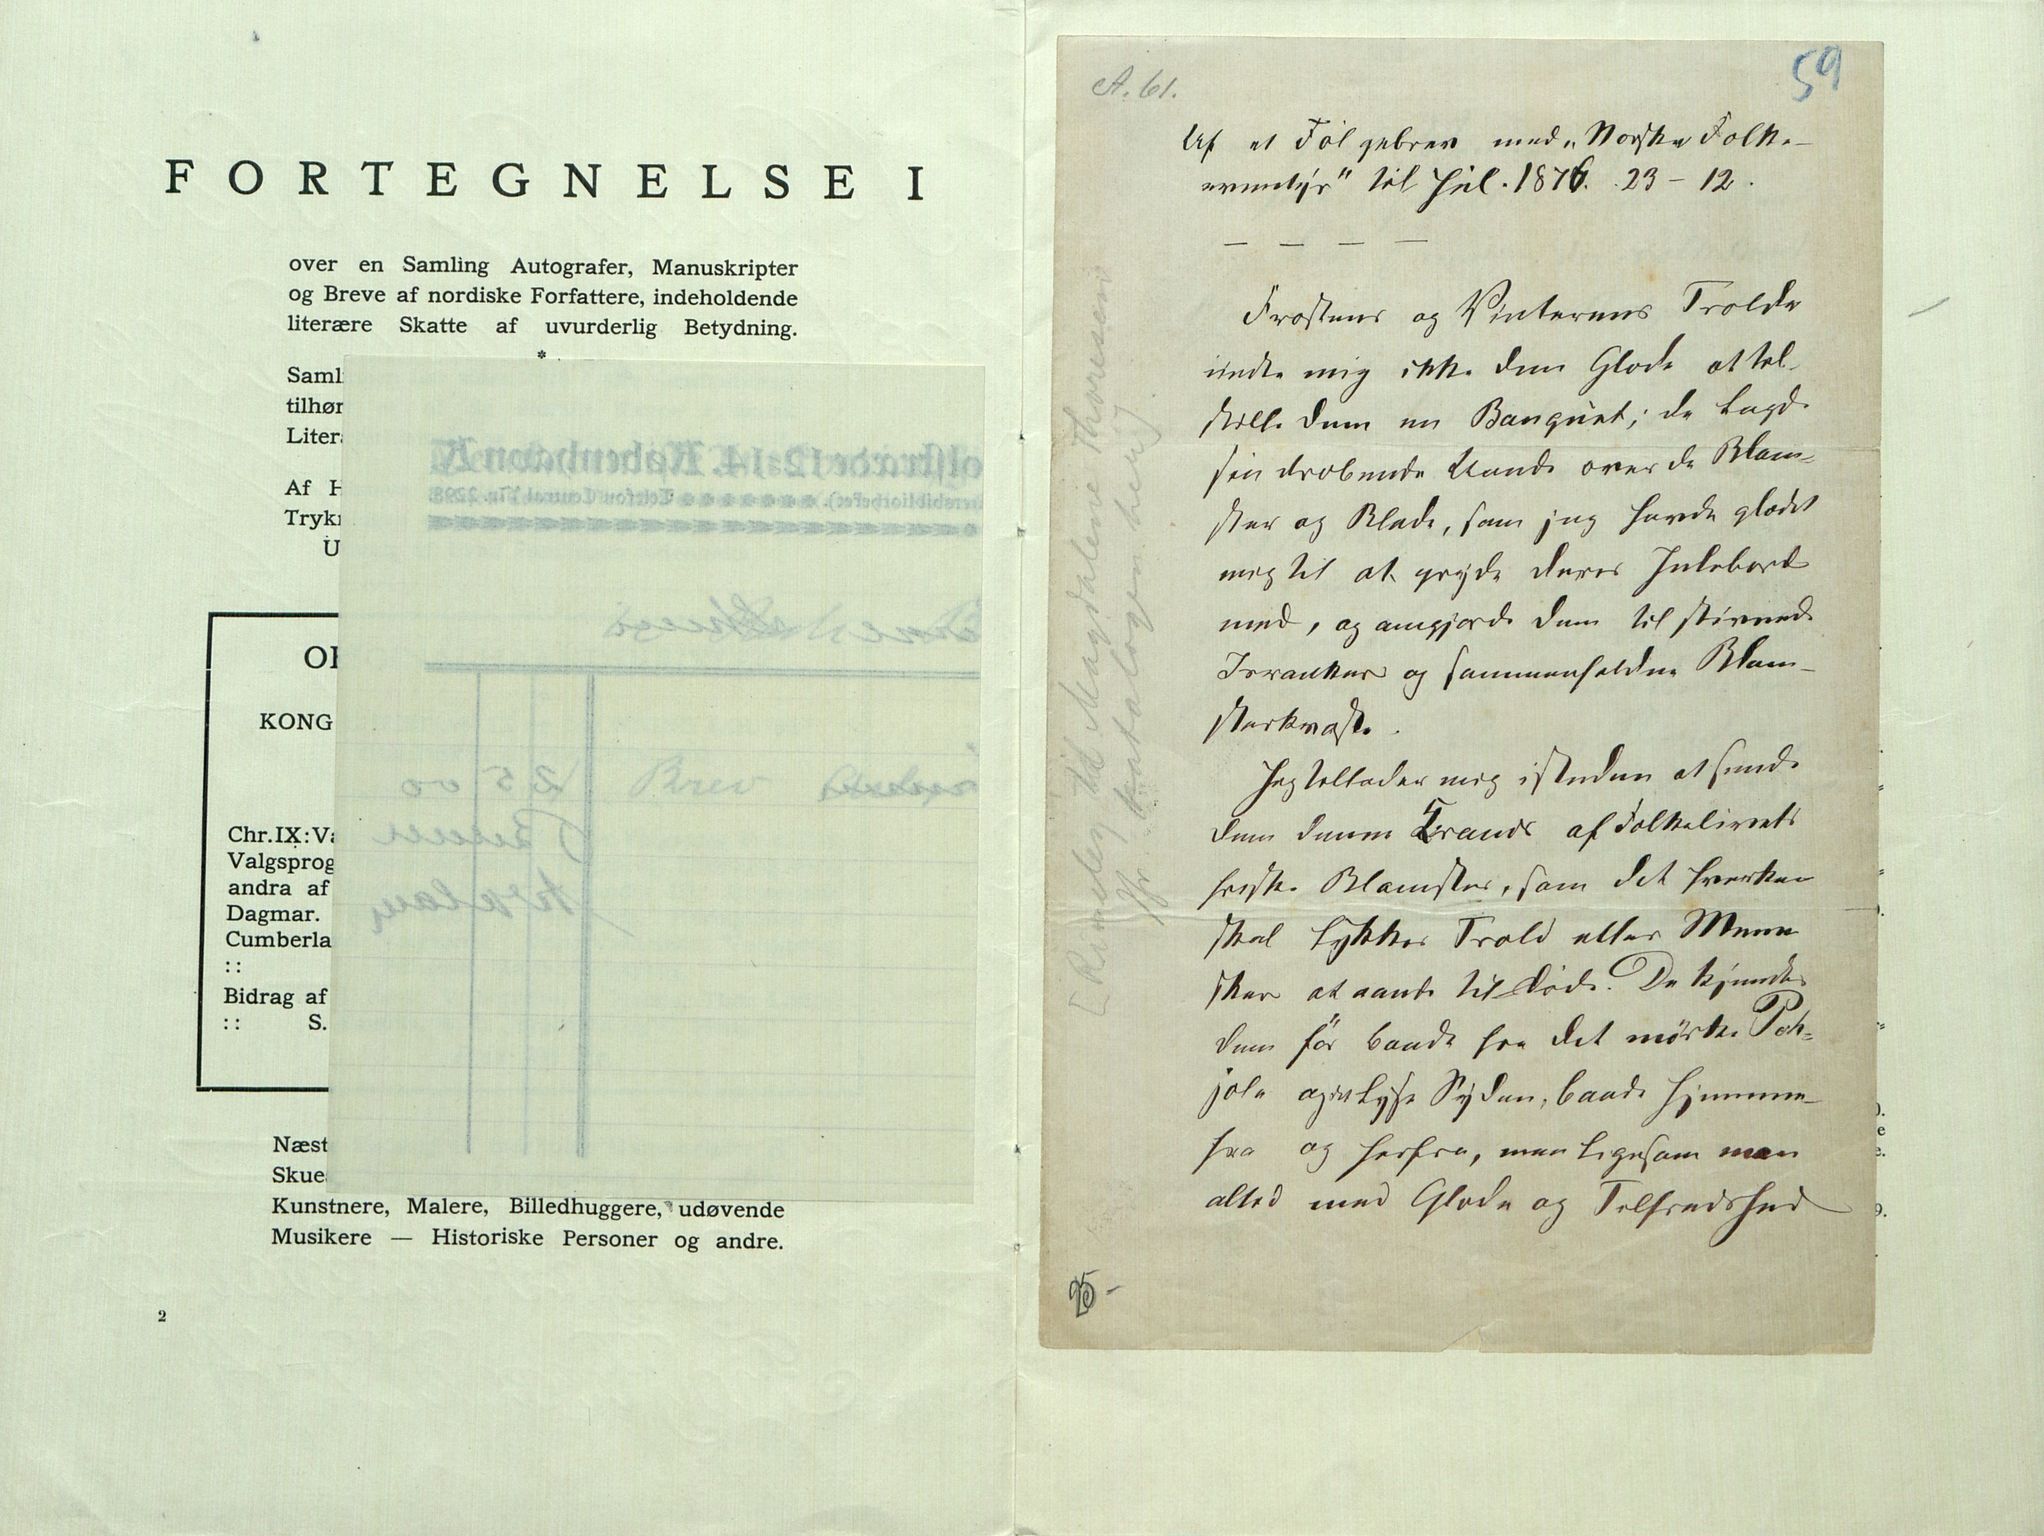 FORTEGNELSE I
over en Samling Autografer, Manuskripter
og Breve af nordiske Forfattere, indeholdende
literære Skatte af uvurderlig Betydning.
*
Saml
tilhør
Liter
Af H
Tryk
U
KONG
Chr.IX:Va
Valgsprog
andra af
Dagmar.
Cumberla
::
Bidrag af
:: S.
Næst
Skue
Kunstnere, Malere, Billedhuggere, udøvende
Musikere — Historiske Personer og andre.
2
Brev
25 00
A. 61.
59
Af et Følgebrev med „Norske Folke-
eventyr" til Jul. 1876. 23 – 12.
— — — —
Frostens og Vinterens Trolde
undte mig ikke den Glæde at til-
stille Dem en Banquet; de lagde
sin dræbende Aande over de Blom-
ster og Blade, som jeg havde glædet
mig til at pryde Deres Julebord
med, og omgjorde dem til stivnede
Isranker og sammenfaldne Blom-
sterkvaste.
Jeg tillader mig isteden at sende
Dem denne Krands af Folkelivets
friske Blomster, som det hverken
skal lykkes Trold eller Menne
sker at aande til døde. De kjender
dem før baade fra det mørke Poh-
jola og det lyse Syden, baade hjemme-
fra og herfra, men ligesom man
altid med Glæde og Tilfredshed
25 –
til Magdalene Thoresen
kataloget her]